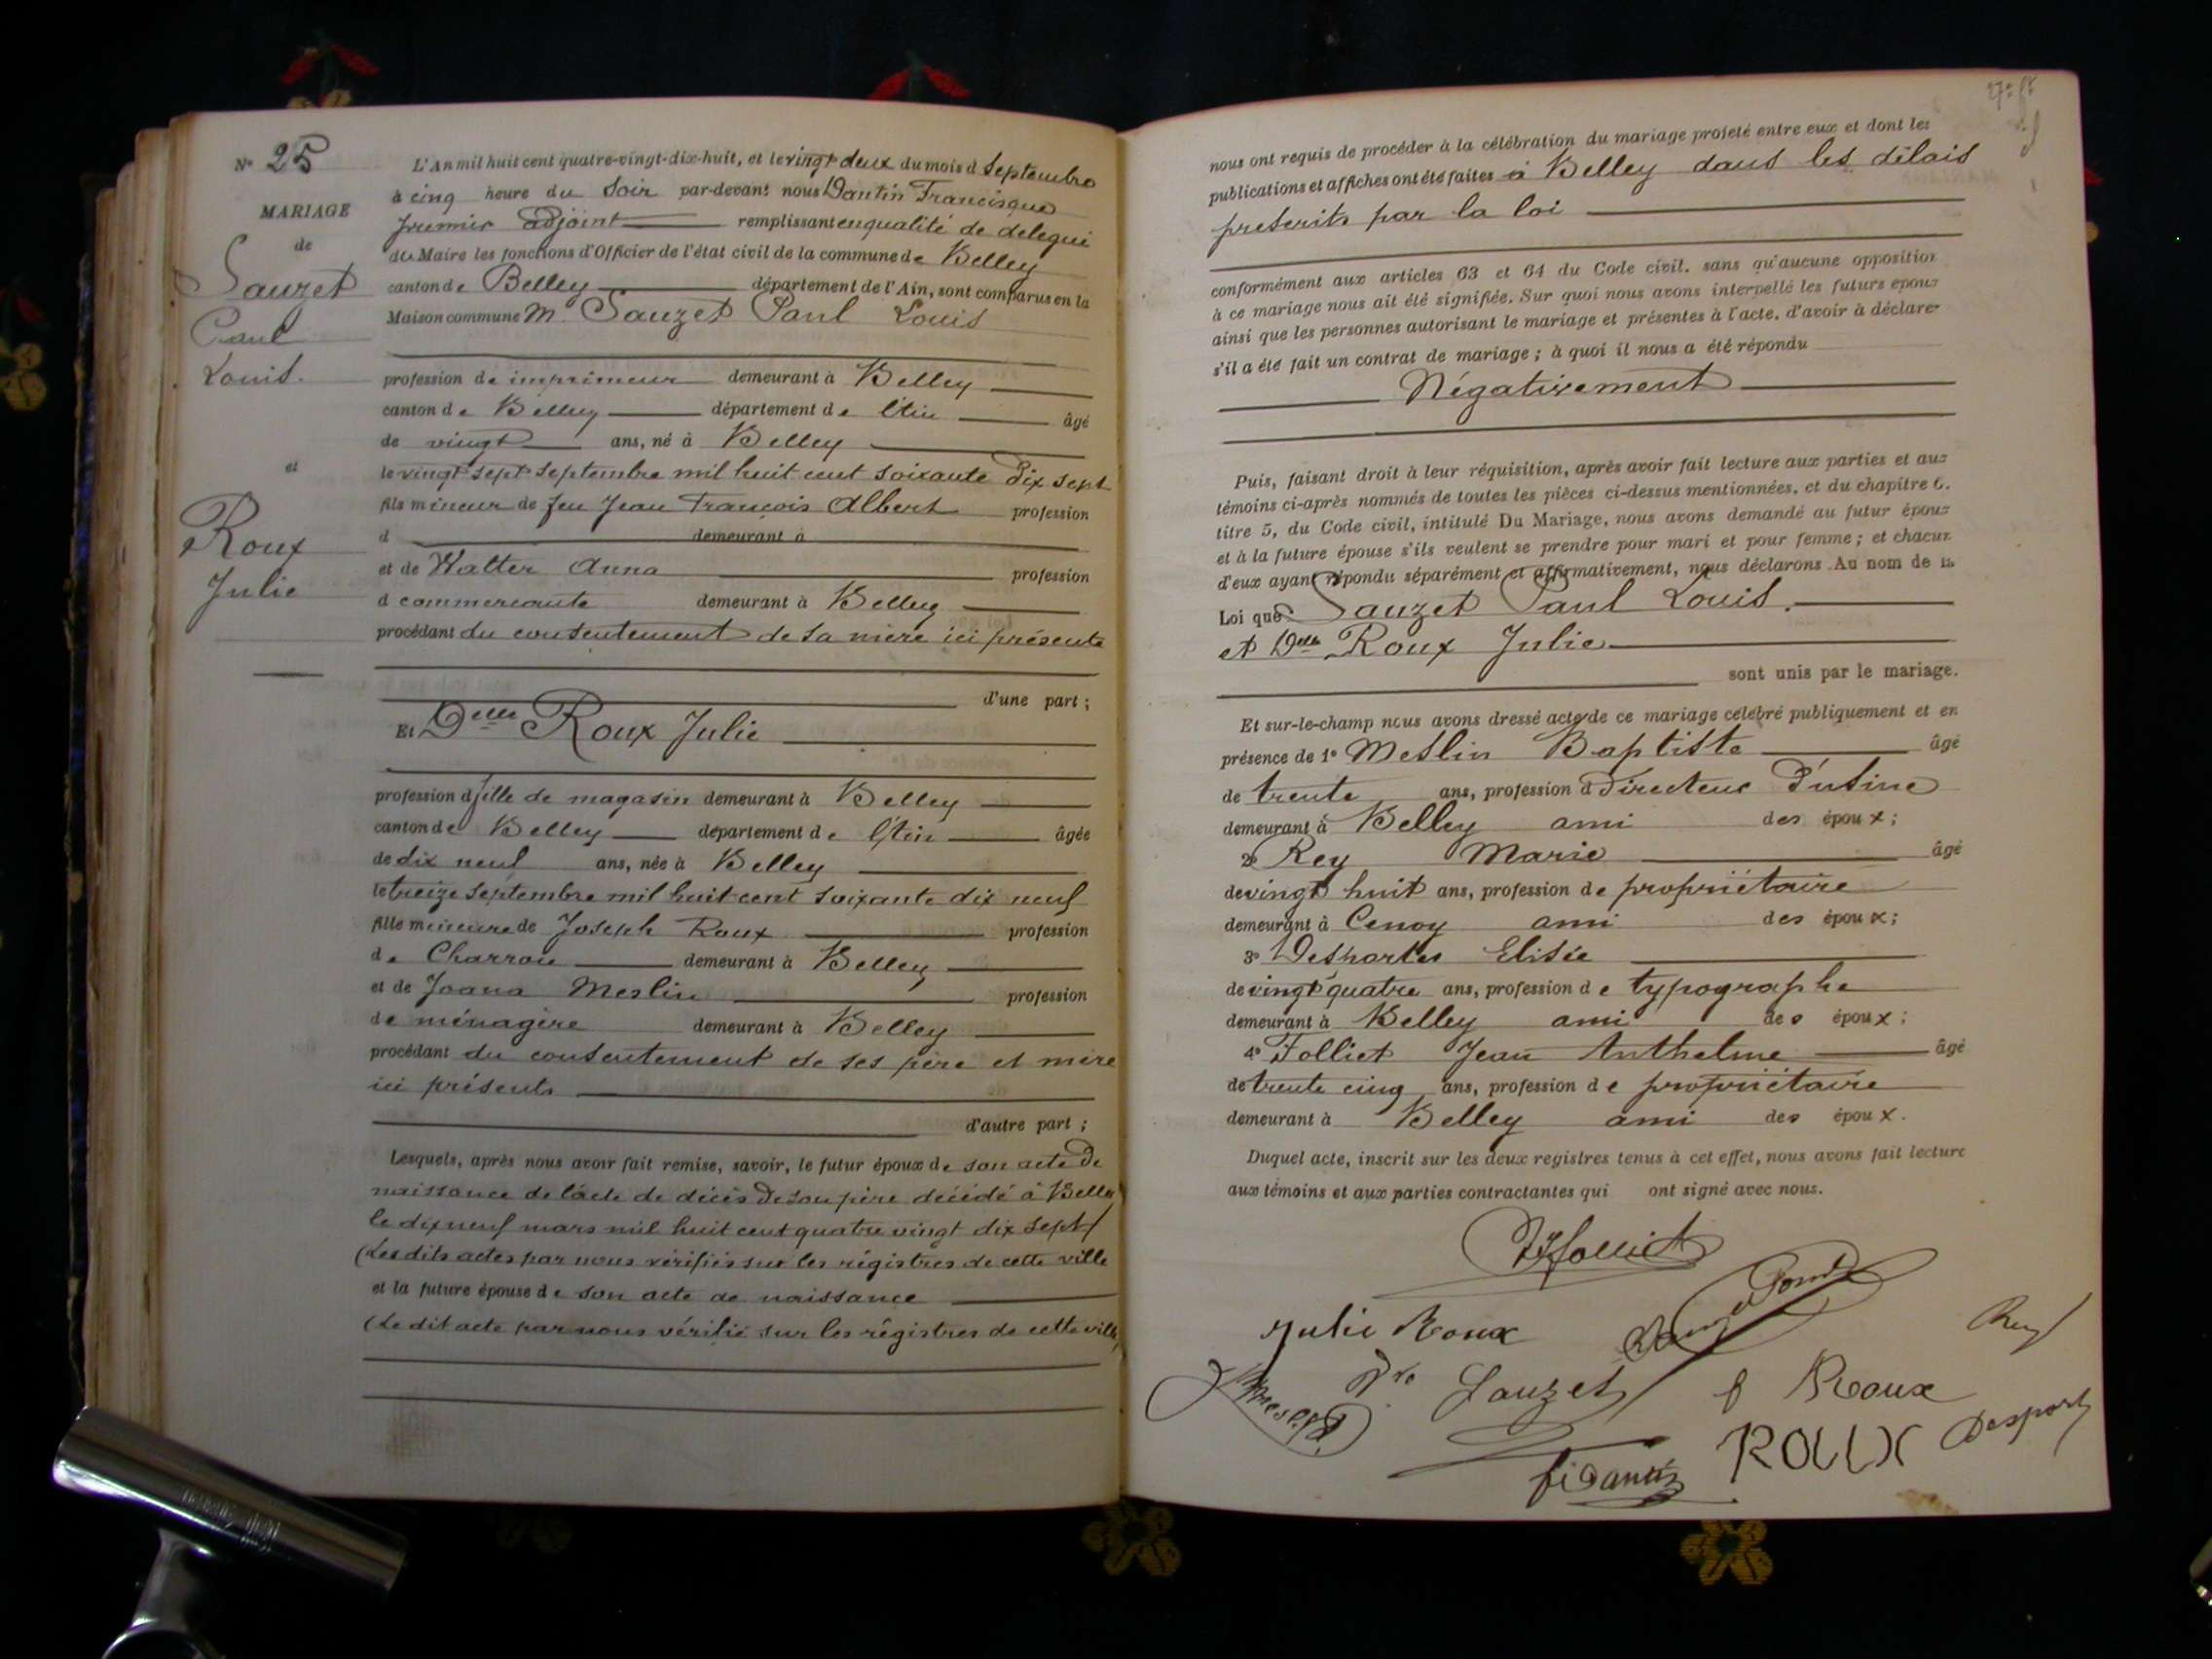 N° 25
MARIAGE
de
Sauzet
Paul
Louis.
et
Roux
Julie
L'An mil huit cent quatre-vingt-dix-huit, et le vingt deux du mois d Septembre
à cinq heure du Soir par-devant nous Dantin Francisque
premier adjoint remplissant en qualité de délégué
du Maire les fonctions d'Officier de l'état civil de la commune de Belley
canton de Belley département de l'Ain, sont comparus en la
Maison commune M. Sauzet Paul Louis
profession de imprimeur demeurant à Belley
canton de Belley département de l'Ain âgé
de vingt ans, né à Belley
le vingt sept septembre mil huit cent soixante dix sept
fils mineur de feu Jean François Albert profession
d demeurant à
et de Walter Anna profession
d commercante demeurant à Belley
procédant du consentement de sa mère ici présente
d'une part ;
Et Delle Roux Julie
profession d fille de magasin demeurant à Belley
canton de Belley département de l'Ain âgée
de dix neuf ans, née à Belley
le treize septembre mil huit cent soixante dix neuf
fille mineure de Joseph Roux profession
de Charron demeurant à Belley
et de Joana Meslin profession
de ménagère demeurant à Belley
procédant du consentement de ses père et mère
ici présents
d'autre part ;
Lesquels, après nous avoir fait remise, savoir, le futur époux de son acte de
naissance de l'acte de décès de son père décédé à Belley
le dix neuf mars mil huit cent quatre vingt dix sept
(Les dits actes par nous vérifiés sur les régistres de cette ville
et la future épouse de son acte de naissance
(Le dit acte par nous vérifié sur les régistres de cette ville
nous ont requis de procéder à la célébration du mariage projeté entre eux et dont les
publications et affiches ont été faites à Belley dans les délais
prescrits par la loi
conformément aux articles 63 et 64 du Code civil. sans qu'aucune opposition
à ce mariage nous ait été signifiée. Sur quoi nous avons interpellé les futurs époux
ainsi que les personnes autorisant le mariage et présentes à l'acte, d'avoir à déclarer
s'il a été fait un contrat de mariage ; à quoi il nous a été répondu
Négativement
Puis, faisant droit à leur réquisition, après avoir fait lecture aux parties et aux
témoins ci-après nommés de toutes les pièces ci-dessus mentionnées, et du chapitre 6.
titre 5, du Code civil, intitulé Du Mariage, nous avons demandé au futur époux
et à la future épouse s'ils veulent se prendre pour mari et pour femme ; et chacun
d'eux ayant répondu séparément et affirmativement, nous déclarons Au nom de la
Loi que Sauzet Paul Louis.
et Delle Roux Julie
sont unis par le mariage.
Et sur-le-champ nous avons dressé acte de ce mariage célébré publiquement et en
présence de 1° Meslin Baptiste âgé
de trente ans, profession d Directeur d'usine
demeurant à Belley ami des époux ;
2° Rey Marie âgé
de vingt huit ans, profession de propriétaire
demeurant à ami des époux ;
3° Desportes Elisée
de vingt quatre ans, profession de typographe
demeurant à Belley ami des époux ;
4° Folliet Jean Anthelme âgé
de trente cinq ans, profession de propriétaire
demeurant à Belley ami des époux.
Duquel acte, inscrit sur les deux registres tenus à cet effet, nous avons fait lecture
aux témoins et aux parties contractantes qui ont signé avec nous.
Folliet
Julie Roux
Rey
Sauzet
Roux
ROUX
Desportes
Dantin